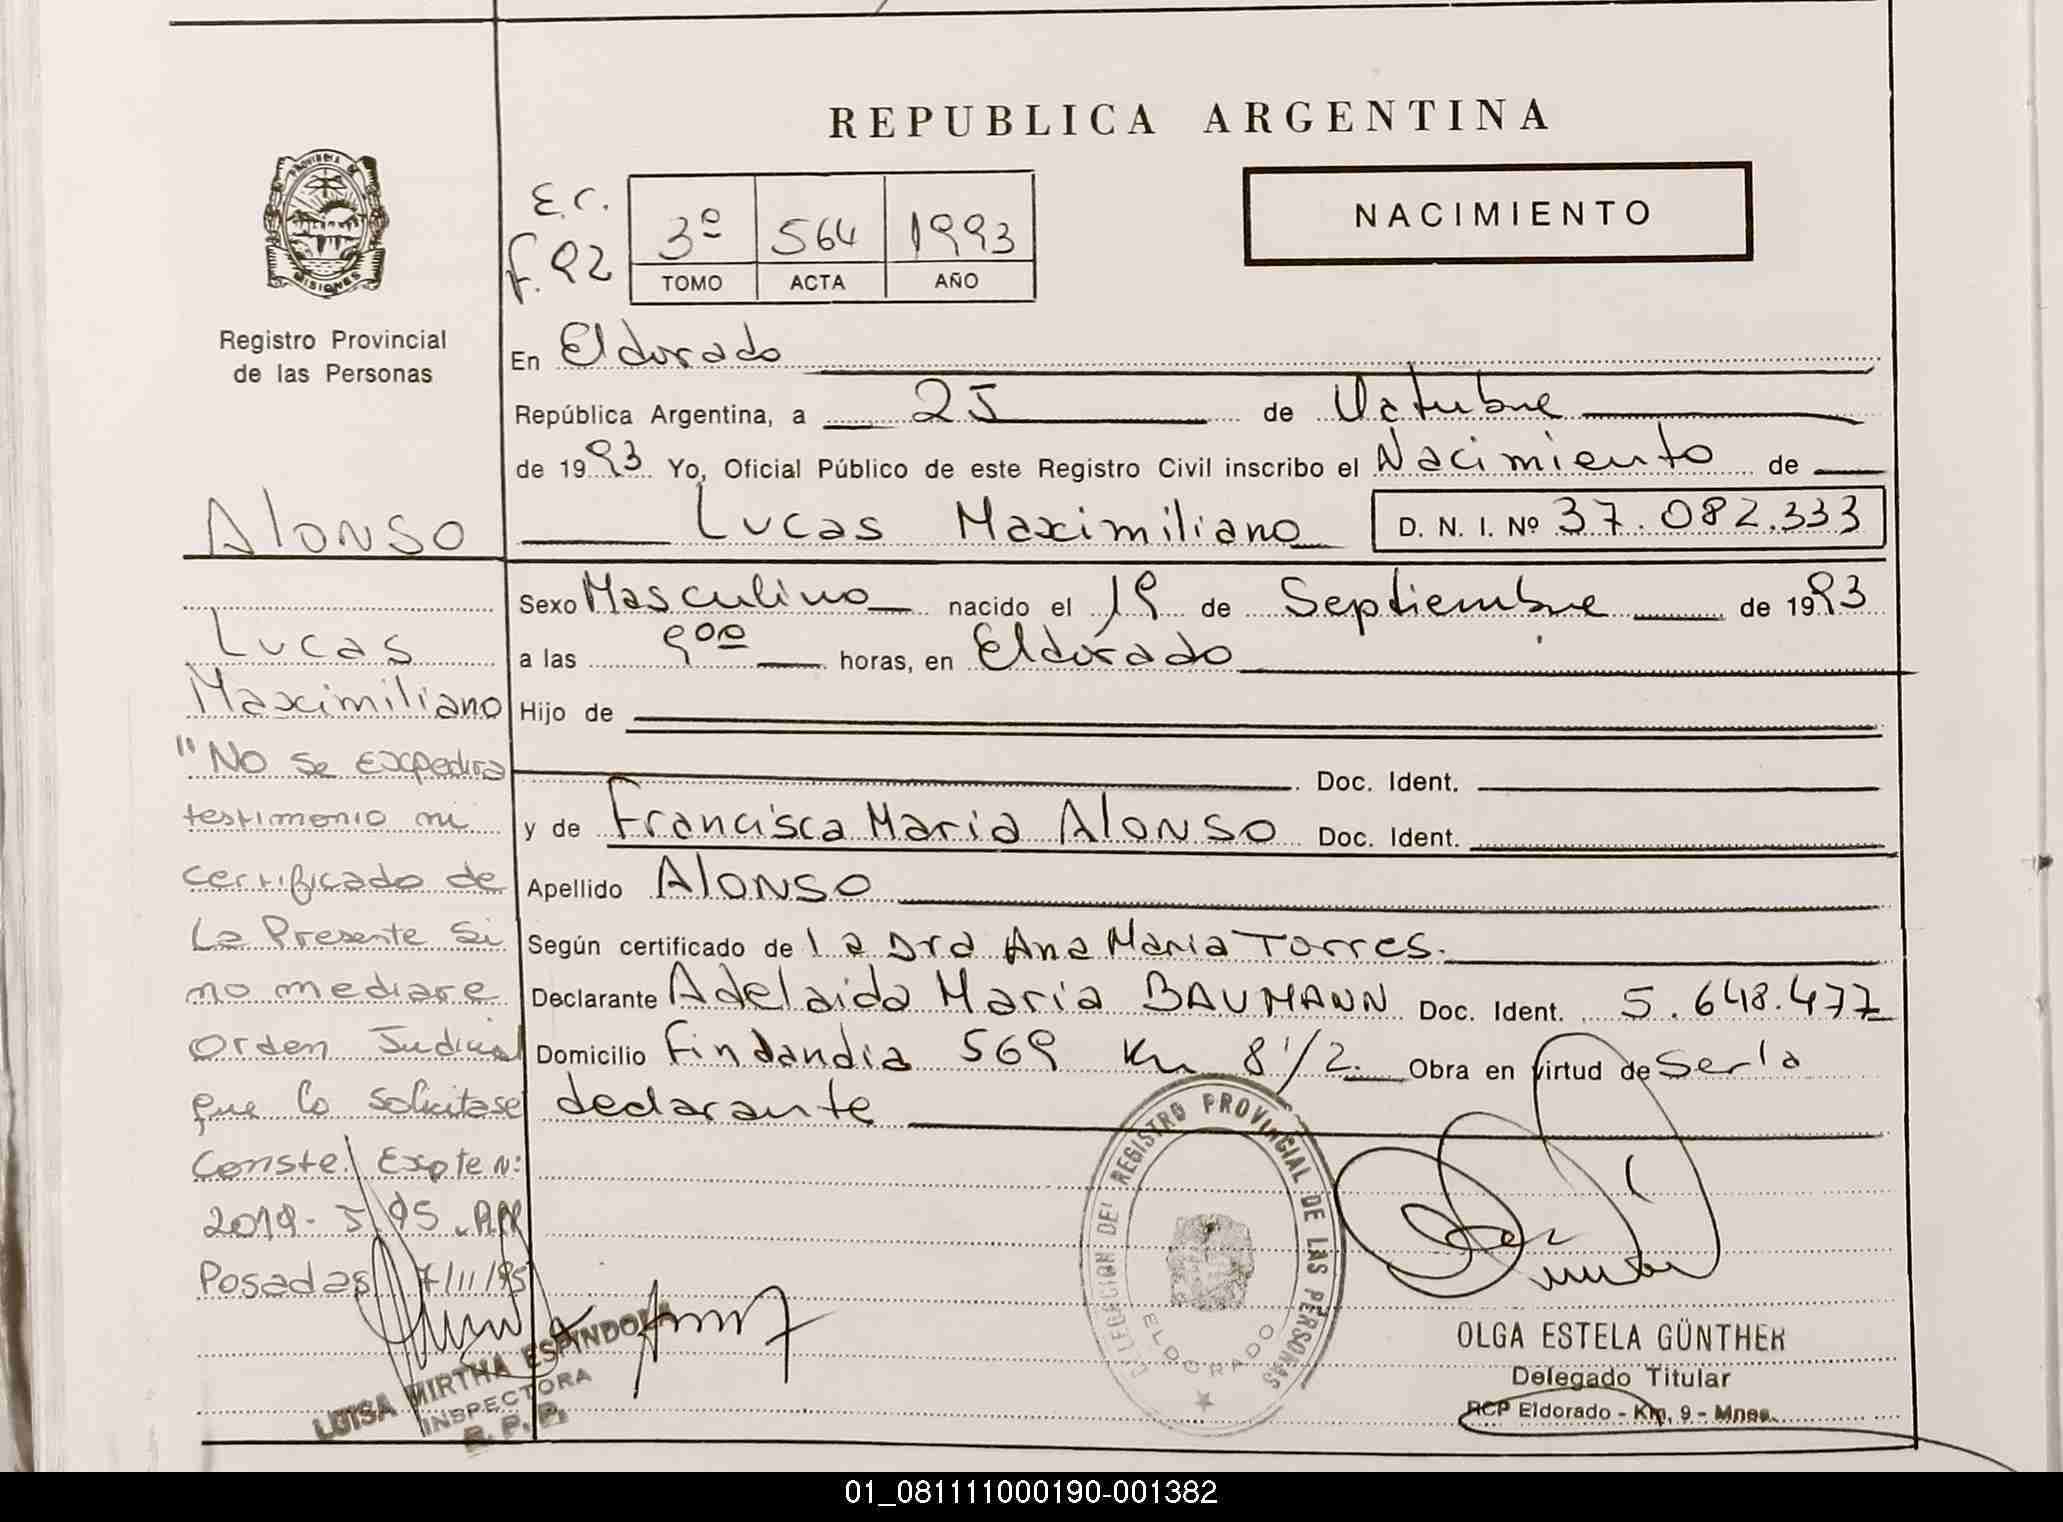 REPUBLICA ARGENTINA
PROVINCIA DE
MISIONES
Registro Provincial
de las Personas
E.C.
F. 92
3º 564 1993
TOMO ACTA AÑO
NACIMIENTO
En Eldorado
República Argentina, a 25 de Octubre
de 1993 Yo, Oficial Público de este Registro Civil inscribo el Nacimiento de
Lucas Maximiliano D. N. I. Nº 37.082.333
Sexo Masculino nacido el 19 de Septiembre de 1993
a las 9ºº horas, en Eldorado
Hijo de
Doc. Ident.
y de Francisca Maria Alonso Doc. Ident.
Apellido Alonso
Según certificado de la Dra Ana Maria Torres.
Declarante Adelaida Maria BAUMANN Doc. Ident. 5.648.477
Domicilio Findandia 569 Km 8 1/2. Obra en virtud de Ser la
declarante
Alonso
Lucas
Maximiliano
"No se expedira
testimonio ni
certificado de
La Presente Si
no mediare
Orden Judicial
que lo Solicitase
Conste. Expte N:
Posadas 7/11/95
LUISA MIRTHA ESPINDOLA
INSPECTORA
R. P. P.
DELEGACION DEL REGISTRO PROVINCIAL DE LAS PERSONAS
ELDORADO
OLGA ESTELA GÜNTHER
Delegado Titular
RCP Eldorado - Km. 9 - Mnes.
01_081111000190-001382